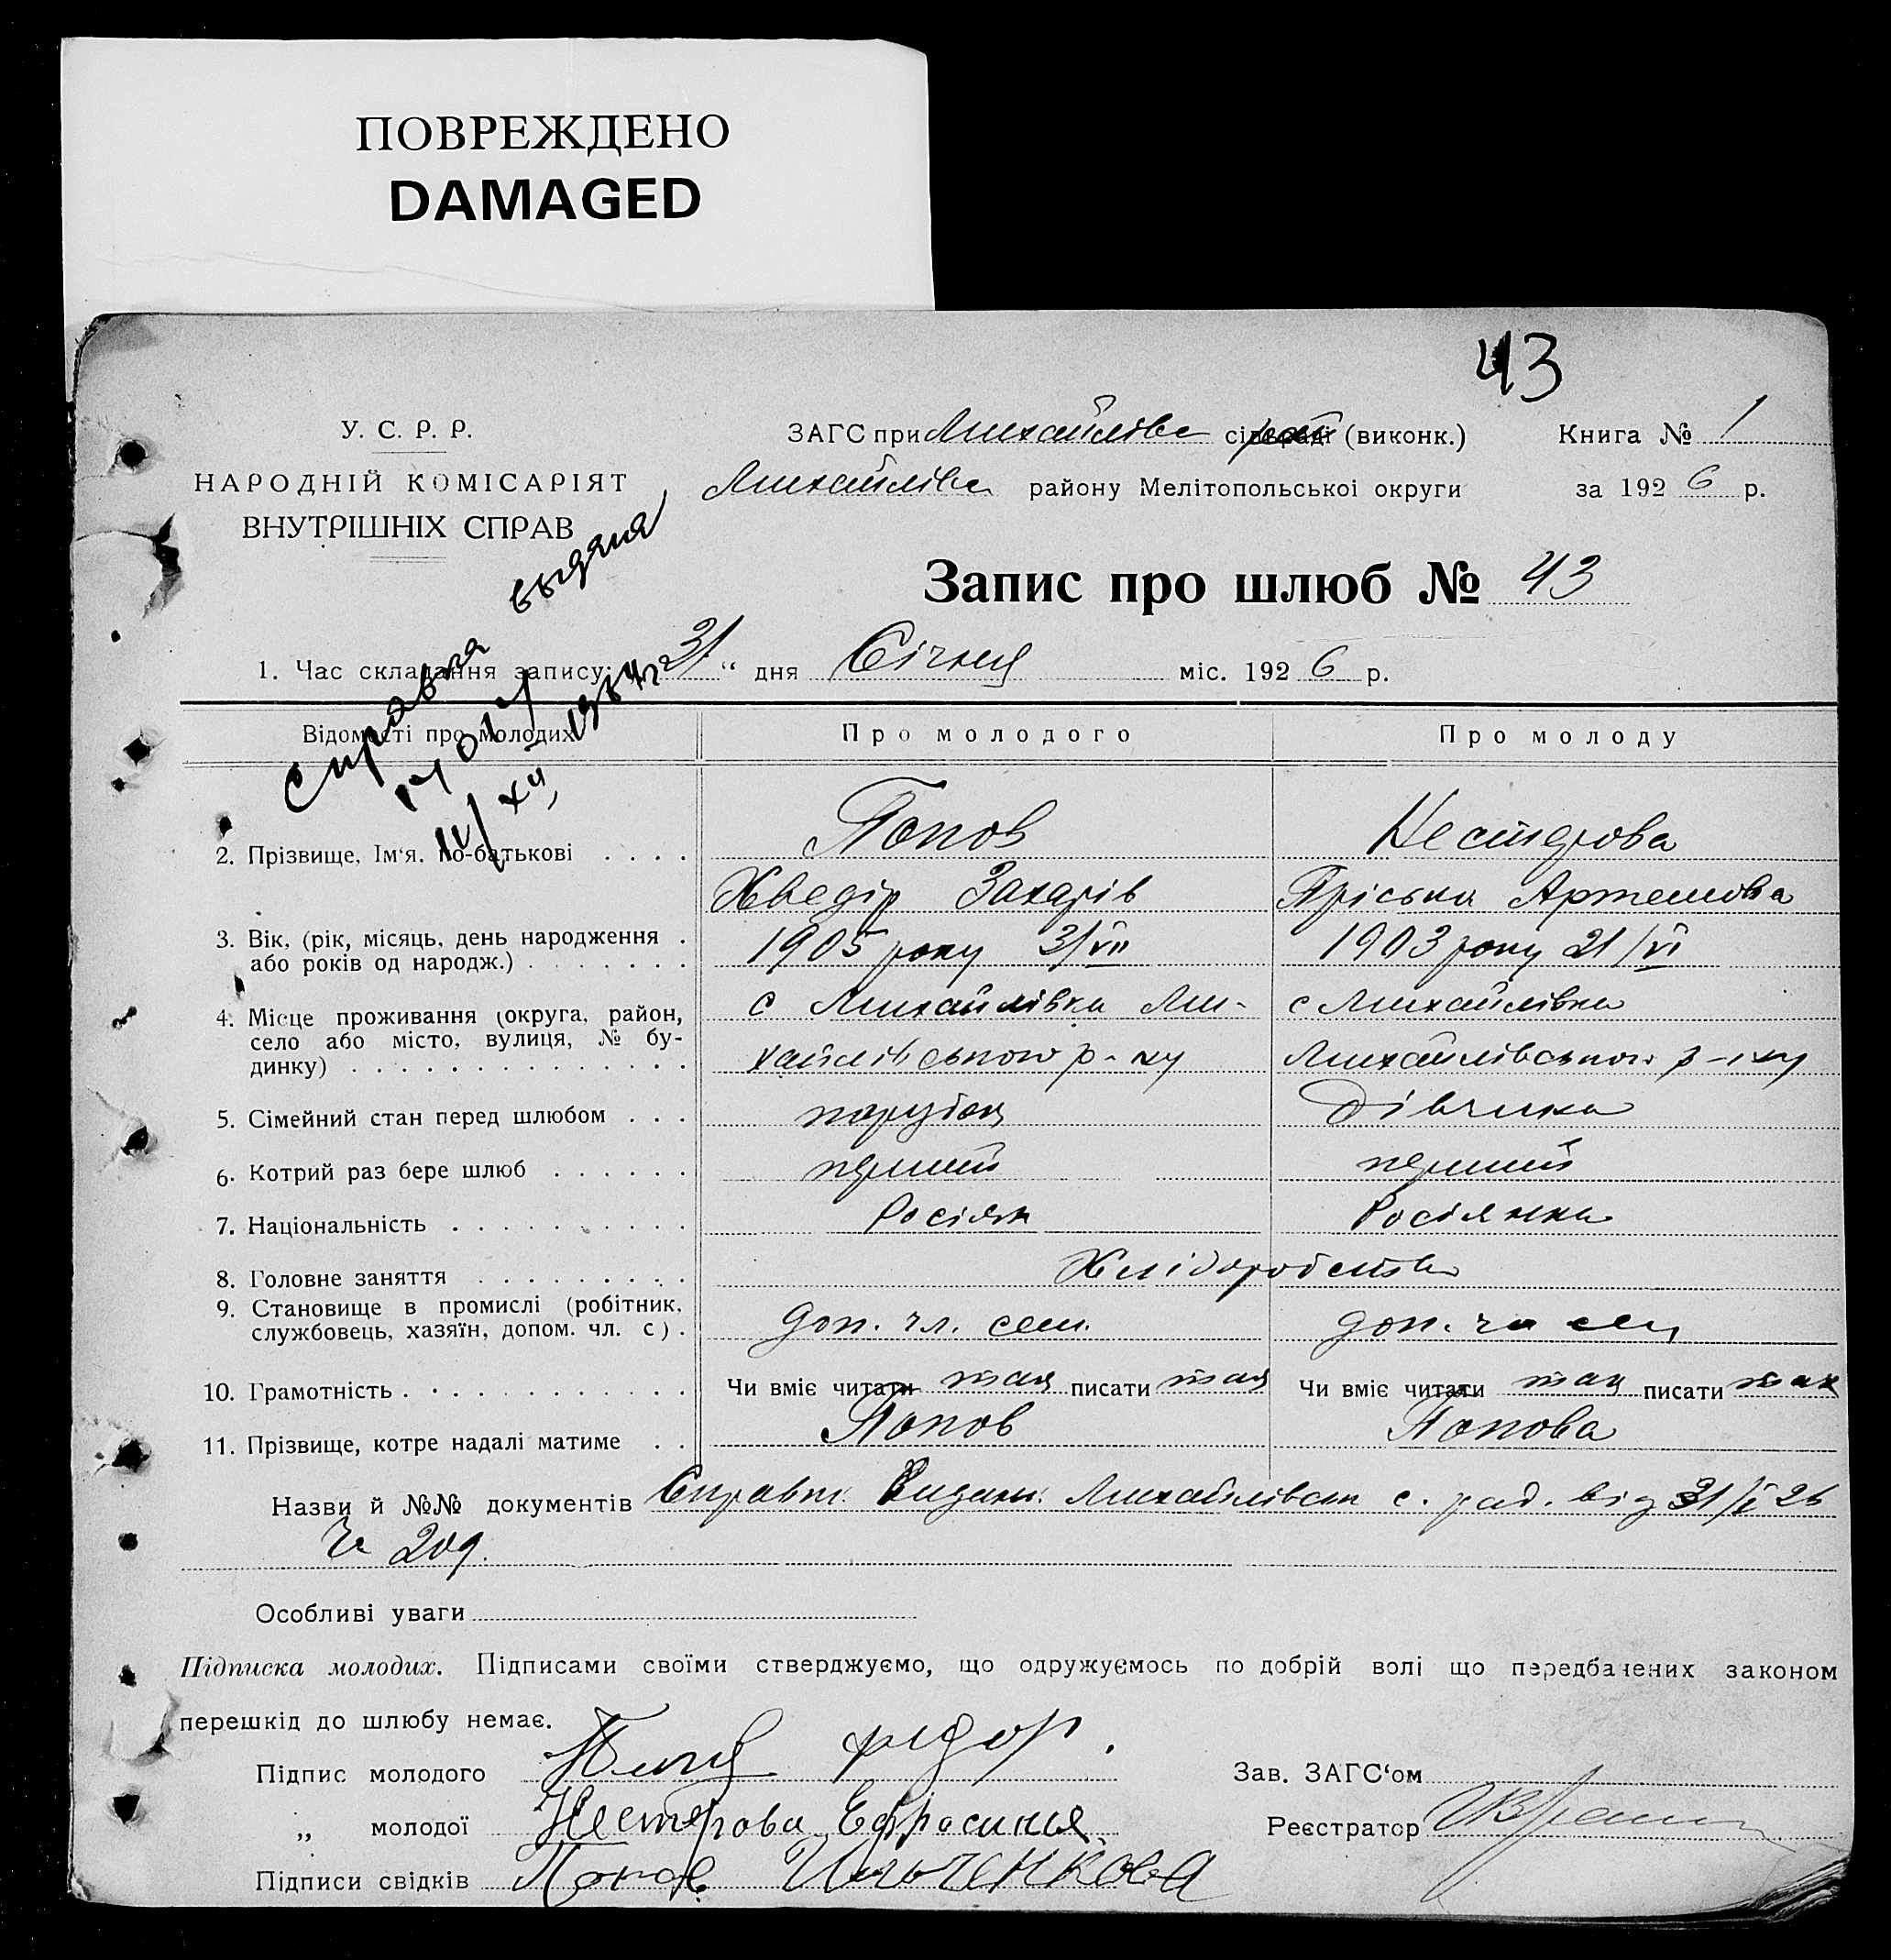 ПОВРЕЖДЕНО
DAMAGED
43
У. С. Р. Р.
НАРОДНІЙ КОМІСАРІЯТ
ВНУТРІШНІХ СПРАВ
ЗАГС при Михайлівс сільраді (виконк.)
Книга № 1
Михайлівс району Мелітопольської округи
за 1926 р.
Справка выдана
Запис про шлюб № 43
1. Час складання запису: „31“ дня Січня міс. 1926 р.
Відомості про молодих
Про молодого
Про молоду
2. Прізвище, Ім'я, по-батькові . . . .
Попов
Нестерова
Хведір Захарів
Пріська Артемова
3. Вік, (рік, місяць, день народження .
або років од народж.) . . . . . . .
1905 року 3/VII
1903 року 21/VI
4. Місце проживання (округа, район,
село або місто, вулиця, № бу-
динку) . . . . . . . . . . . . . .
с Михайлівка Ми-
с Михайлівка
хайлівського р-ну
Михайлівського р-ну
5. Сімейний стан перед шлюбом . . .
парубок
дівчина
6. Котрий раз бере шлюб . . . . . .
перший
перший
7. Національність . . . . . . . . . .
Росіян
Росіянка
8. Головне заняття . . . . . . . . .
Хліборобство
9. Становище в промислі (робітник,
службовець, хазяїн, допом. чл. с) .
доп. чл. сем.
доп. чл сем
10. Грамотність . . . . . . . . . . . .
Чи вміє читати так писати так
Чи вміє читати так писати так
11. Прізвище, котре надалі матиме . .
Попов
Попова
Назви й №№ документів Справки Видани Михайлівськ с. рад. від 31/I 26
Чи 209.
Особливі уваги
Підписка молодих. Підписами своїми стверджуємо, що одружуємось по добрій волі що передбачених законом
перешкід до шлюбу немає.
Підпис молодого Федор.
Зав. ЗАГС'ом
„ молодої Нестерова Ефросинья
Реєстратор
Підписи свідків Попов Ильченкова